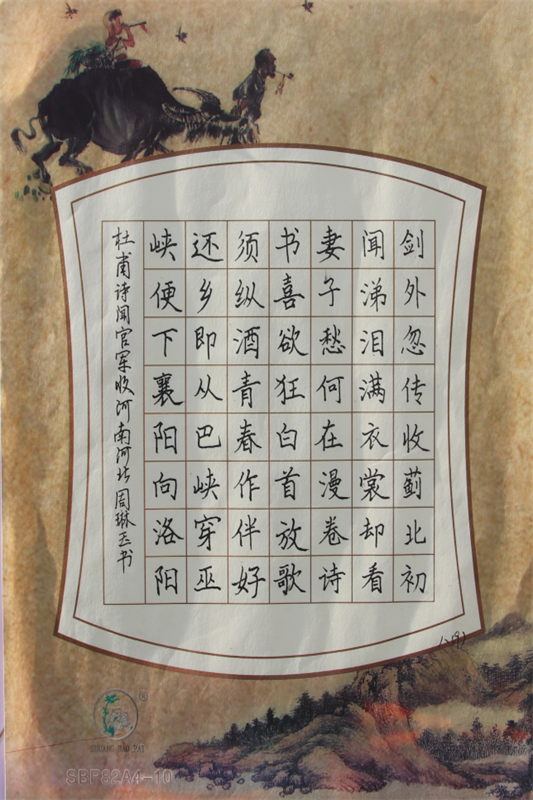 剑外忽传收蓟北初
闻涕泪满衣裳却看
妻子愁何在漫卷诗
书喜欲狂白首放歌
须纵酒青春作伴好
还乡即从巴峡穿巫
峡便下襄阳向洛阳
杜甫诗闻官军收河南河北周琳玉书
SBF82A4-10